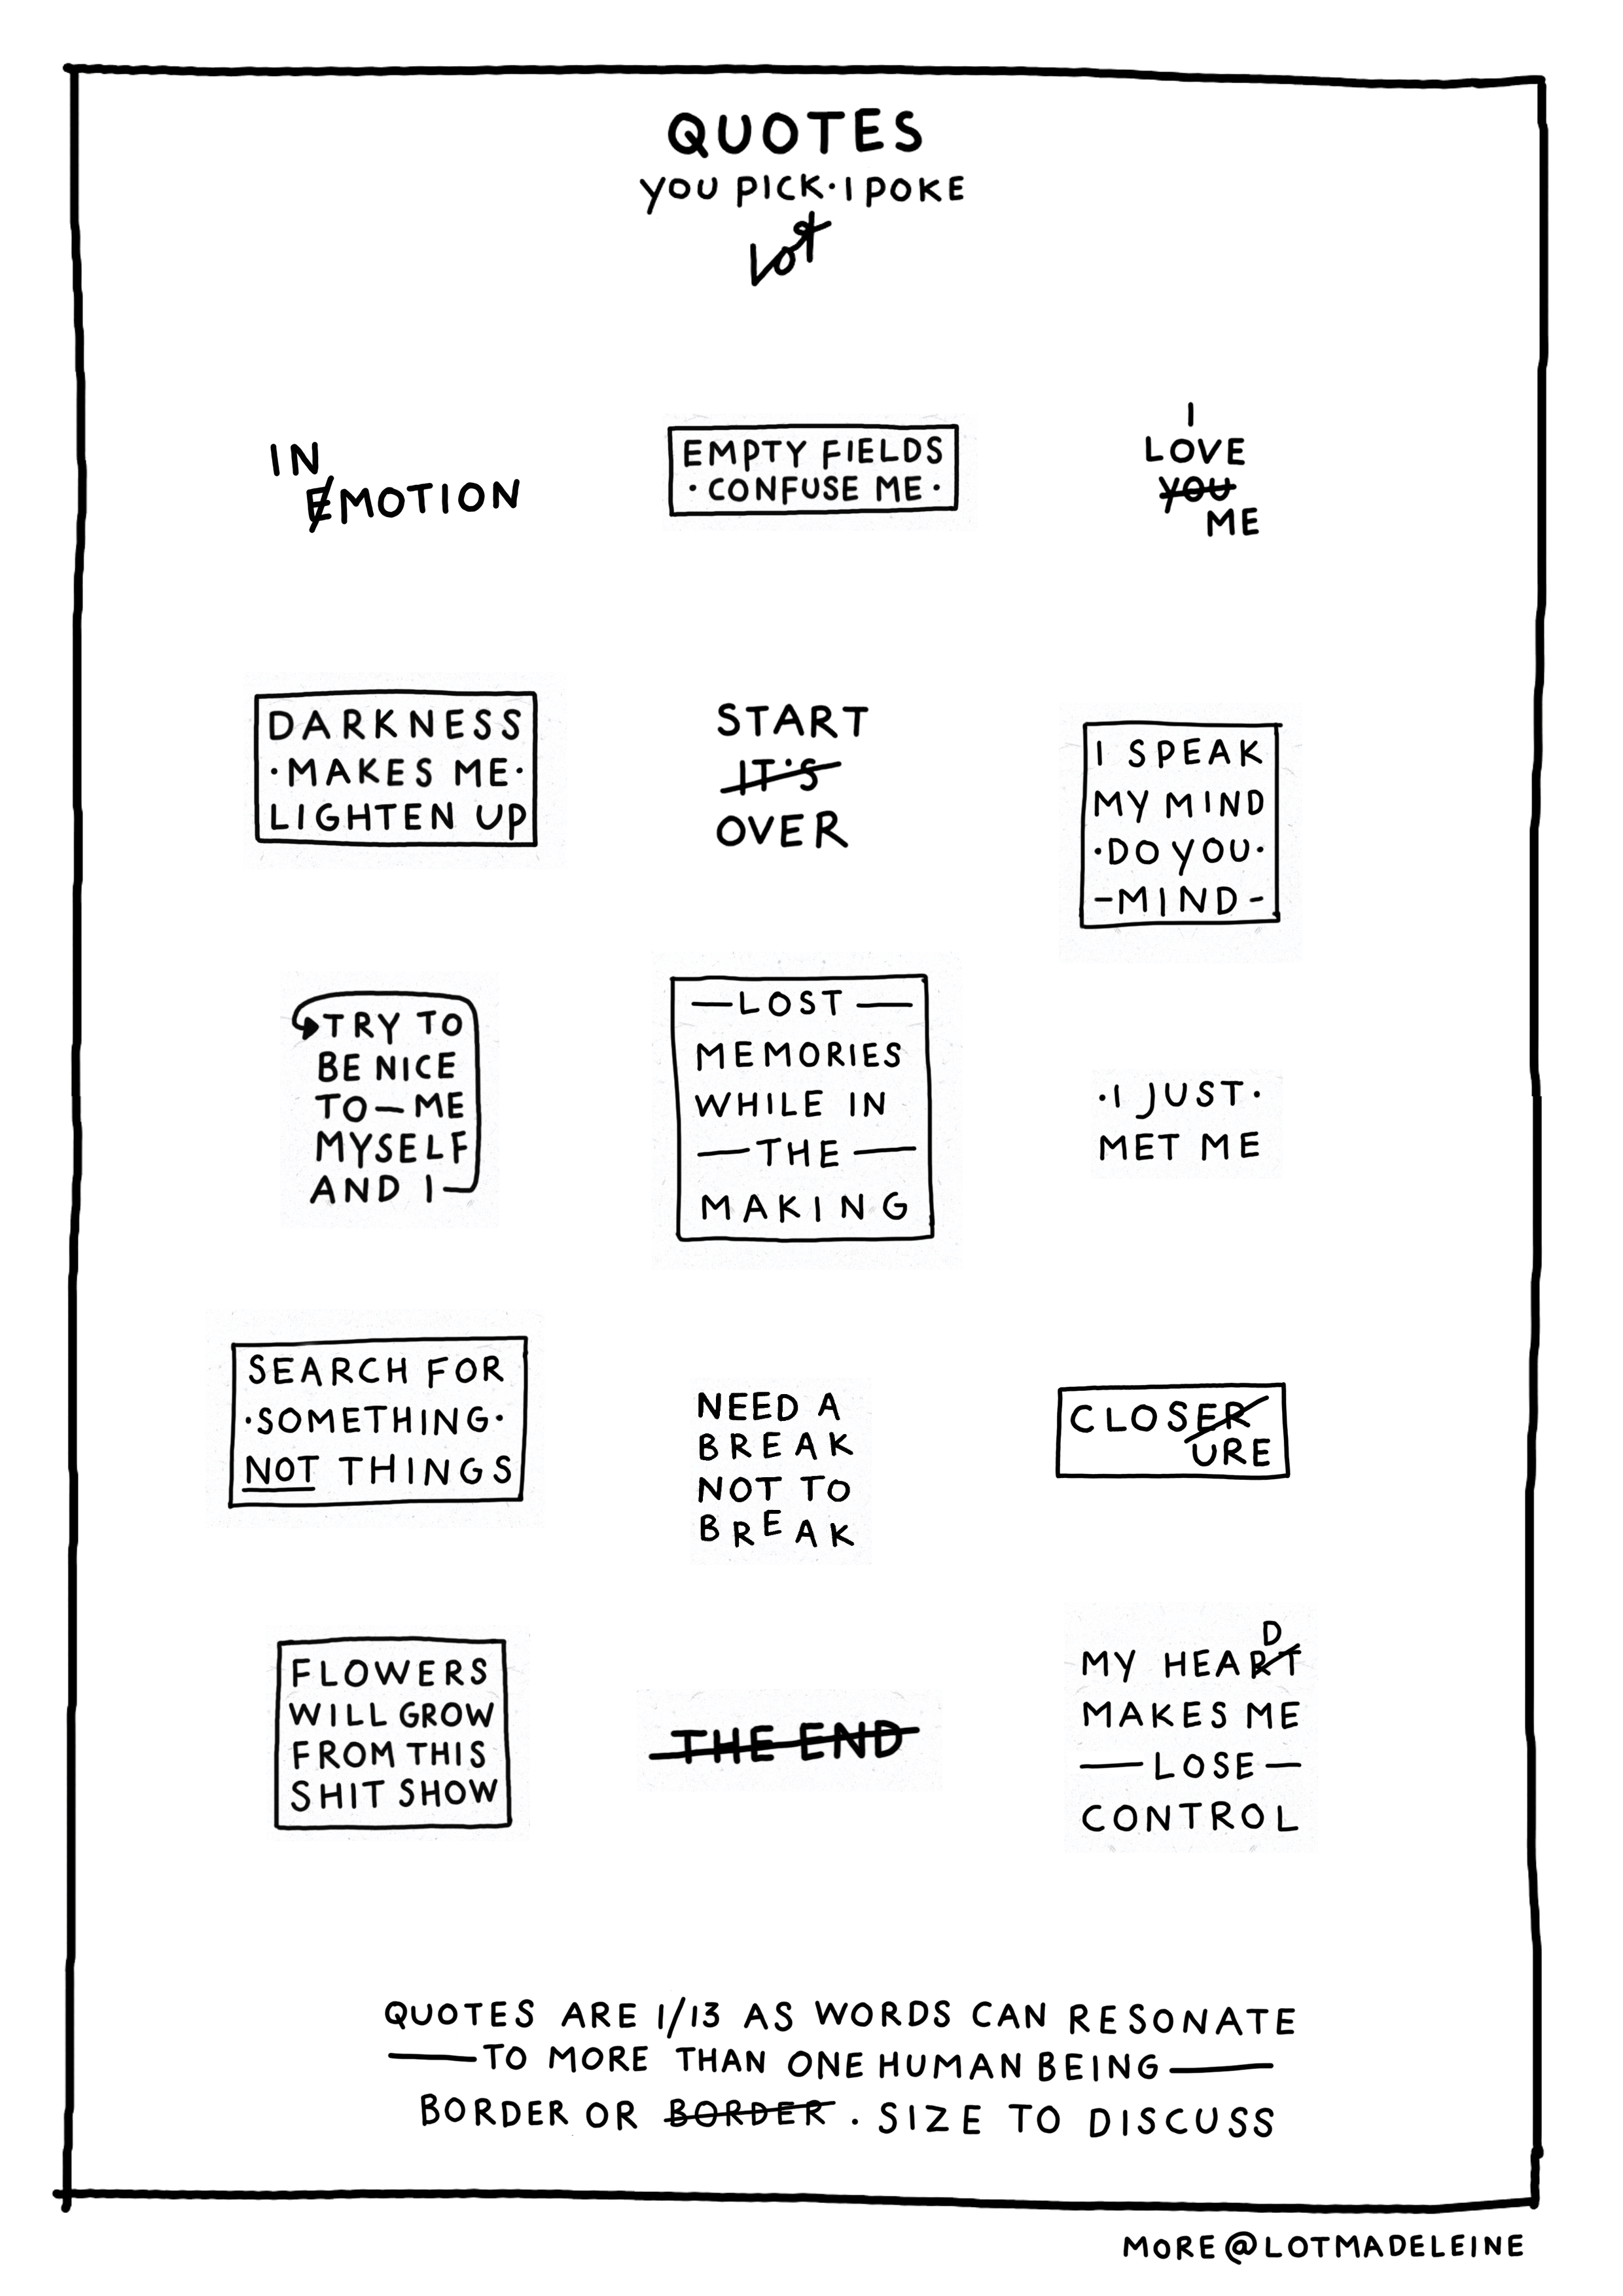 QUOTES
YOU PICK·I POKE
Lot
IN
EMOTION
EMPTY FIELDS
·CONFUSE ME·
I
LOVE
YOU
ME
DARKNESS
·MAKES ME·
LIGHTEN UP
START
IT'S
OVER
I SPEAK
MY MIND
·DO YOU·
-MIND-
TRY TO
BE NICE
TO—ME
MYSELF
AND I
—LOST—
MEMORIES
WHILE IN
—THE—
MAKING
·I JUST·
MET ME
SEARCH FOR
·SOMETHING·
NOT THINGS
NEED A
BREAK
NOT TO
BREAK
CLOSER
URE
FLOWERS
WILL GROW
FROM THIS
SHIT SHOW
THE END
D
MY HEART
MAKES ME
—LOSE—
CONTROL
QUOTES ARE 1/13 AS WORDS CAN RESONATE
—TO MORE THAN ONE HUMAN BEING—
BORDER OR BORDER · SIZE TO DISCUSS
MORE@LOTMADELEINE